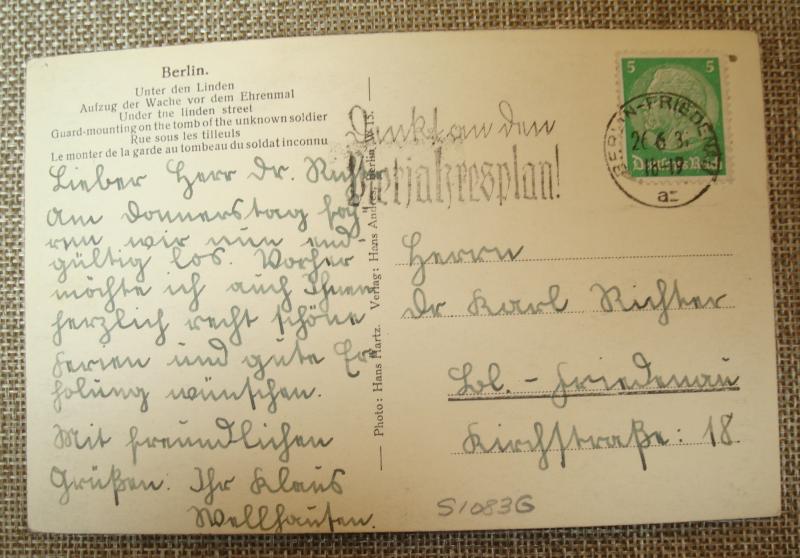 Berlin.
Unter den Linden
Aufzug der Wache vor dem Ehrenmal
Under tne linden street
Guard-mounting on the tomb of the unknown soldier
Rue sous les tilleuls
Le monter de la garde au tombeau du soldat inconnu
Lieber Herr Dr. Richter
Am Donnerstag fah-
ren wir nun end-
gültig los. Vorher
möchte ich auch Ihnen
herzlich recht schöne
Ferien und gute Er-
holung wünschen.
Mit freundlichen
Grüßen. Ihr Klaus
Wellhausen.
Photo: Hans Hartz. Verlag: Hans Andres, Berlin, W. 15.
Denkt an den
Vierjahresplan!
5 5
Deutsches Reich
BERLIN-FRIEDENAU
26.6.3
18-19
a
Herrn
Dr Karl Richter
Bln. - Friedenau
Kirchstraße: 18.
S1083G